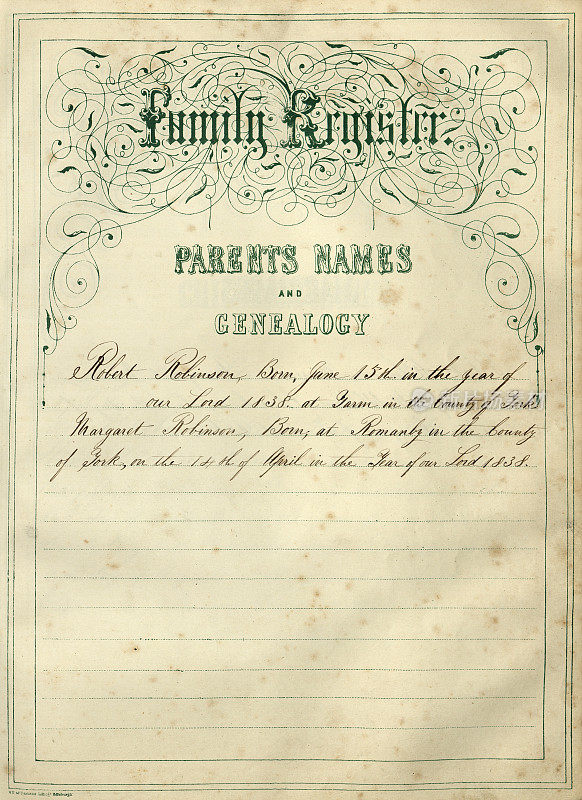 Family Register.
PARENTS NAMES
AND
GENEALOGY
Robert Robinson, Born, June 15th in the year of
our Lord 1838. at Yarm in the County of York
Margaret Robinson, Born, at Romanby in the County
of York, on the 14th of April in the Year of our Lord 1838.
Edinburgh